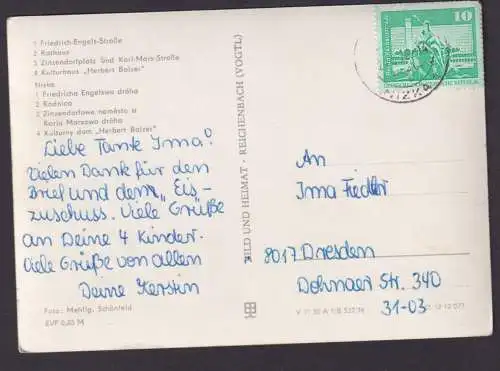 1 Friedrich-Engels-Straße
2 Rathaus
3 Zinzendorfplatz und Karl-Marx-Straße
4 Kulturhaus „Herbert Balzer"
Niska
1 Friedricha Engelsowa dróha
2 Radnica
3 Zinzendorfowe naměsto a
Karla Marxowa dróha
4 Kulturny dom „Herbert Balzer"
Liebe Tante Irma!
Vielen Dank für den
Brief und den „Eis"-
zuschuss. Viele Grüße
an Deine 4 Kinder.
Viele Grüße von allen
Deine Kerstin
Foto: Mentig, Schönfeld
EVP 0,25 M
BILD UND HEIMAT · REICHENBACH (VOGTL)
10
An
Irma Fiedler
8017 Dresden
Dohnaer Str. 340
31-03